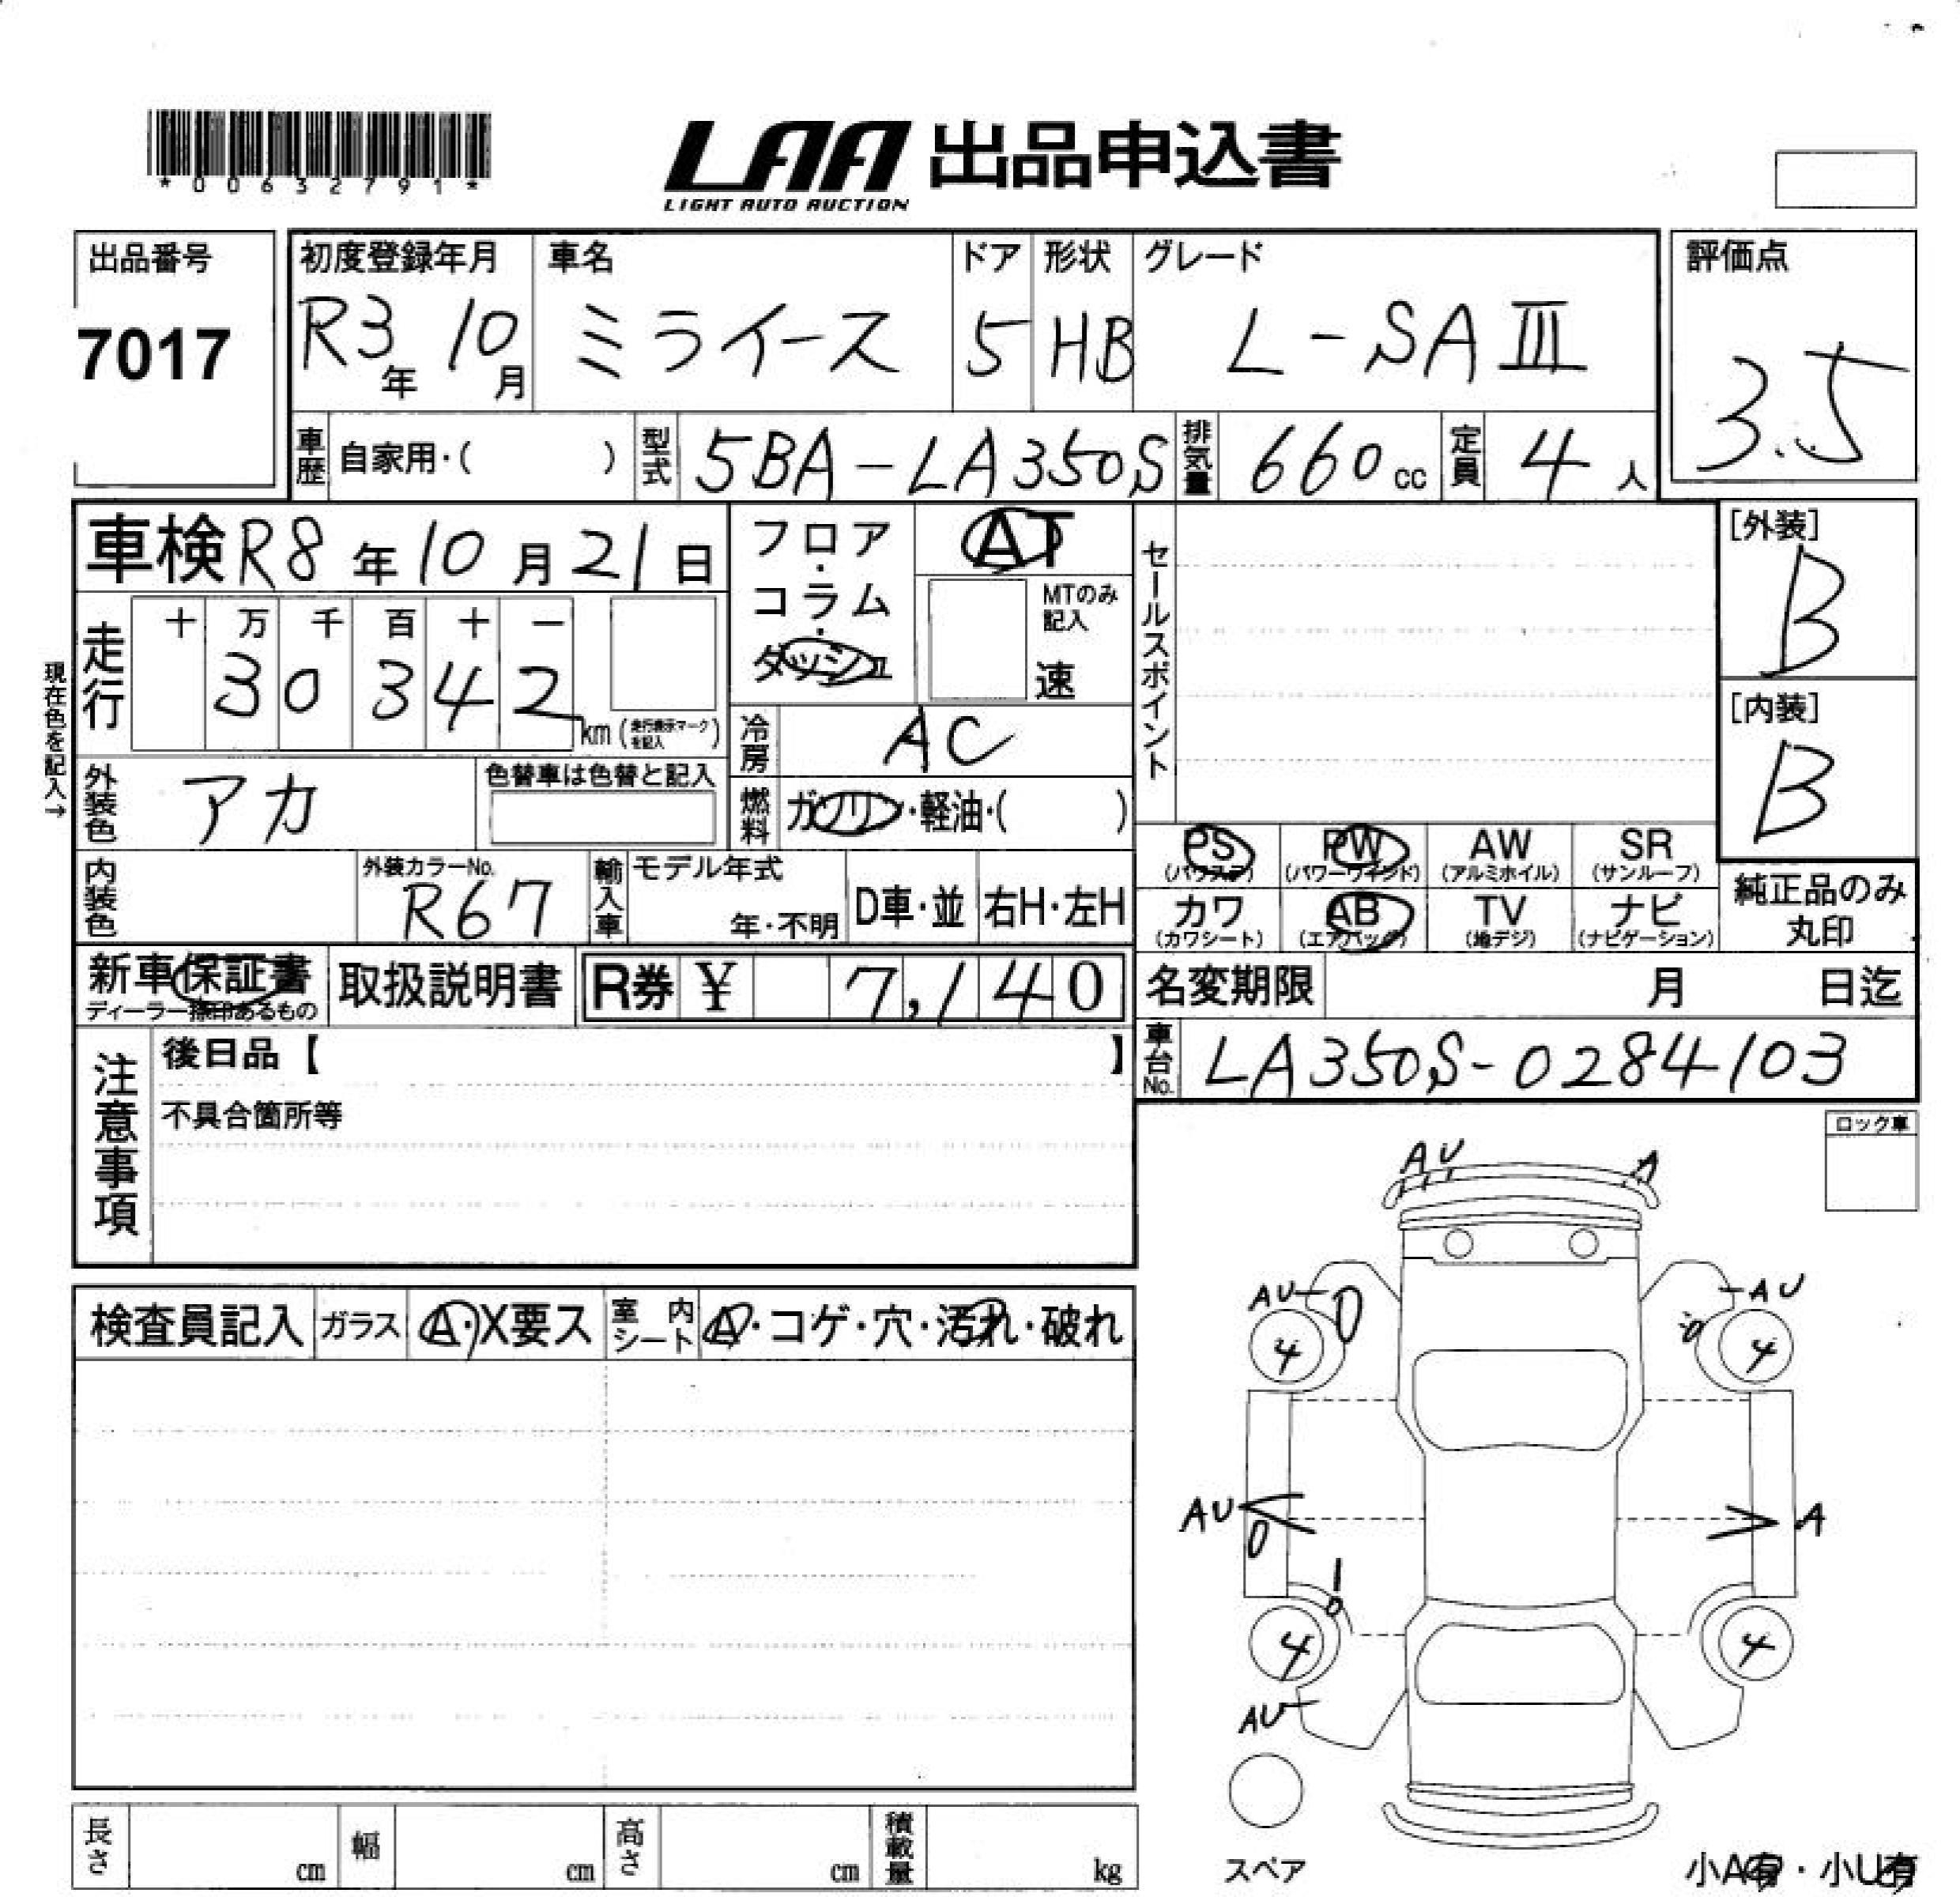 *00632791*
LAA 出品申込書
LIGHT AUTO AUCTION
出品番号
7017
初度登録年月 車名 ドア 形状 グレード
R3年 10月 ミライース 5 HB L-SAⅢ
評価点
3.5
車歴 自家用・( ) 型式 5BA-LA350S 排気量 660cc 定員 4人
車検 R8年10月21日
フロア・コラム・ダッシュ
AT
MTのみ記入
速
セールスポイント
[外装]
B
[内装]
B
走行
十 万 千 百 十 一
3 0 3 4 2 km (走行表示マークを記入)
現在色を記入→
冷房 AC
外装色 アカ
色替車は色替と記入
燃料 ガソリン・軽油・( )
PS AW SR PW
(パワステ) (パワーウィンド) (アルミホイル) (サンルーフ)
カワ AB TV ナビ
(カワシート) (エアバッグ) (地デジ) (ナビゲーション)
純正品のみ
丸印
内装色 外装カラーNo. R67 輸入車 モデル年式 年・不明 D車・並 右H・左H
新車保証書
ディーラー捺印あるもの
取扱説明書 R券 ¥ 7,140
名変期限 月 日迄
車台No. LA350S-0284103
注意事項
後日品【 】
不具合箇所等
ロック車
AU A
AU AU
4 4
AU A
4 4
AU
検査員記入 ガラス A・X要ス 室内シート A・コゲ・穴・汚れ・破れ
長さ cm 幅 cm 高さ cm 積載量 kg
スペア
小A有・小U有